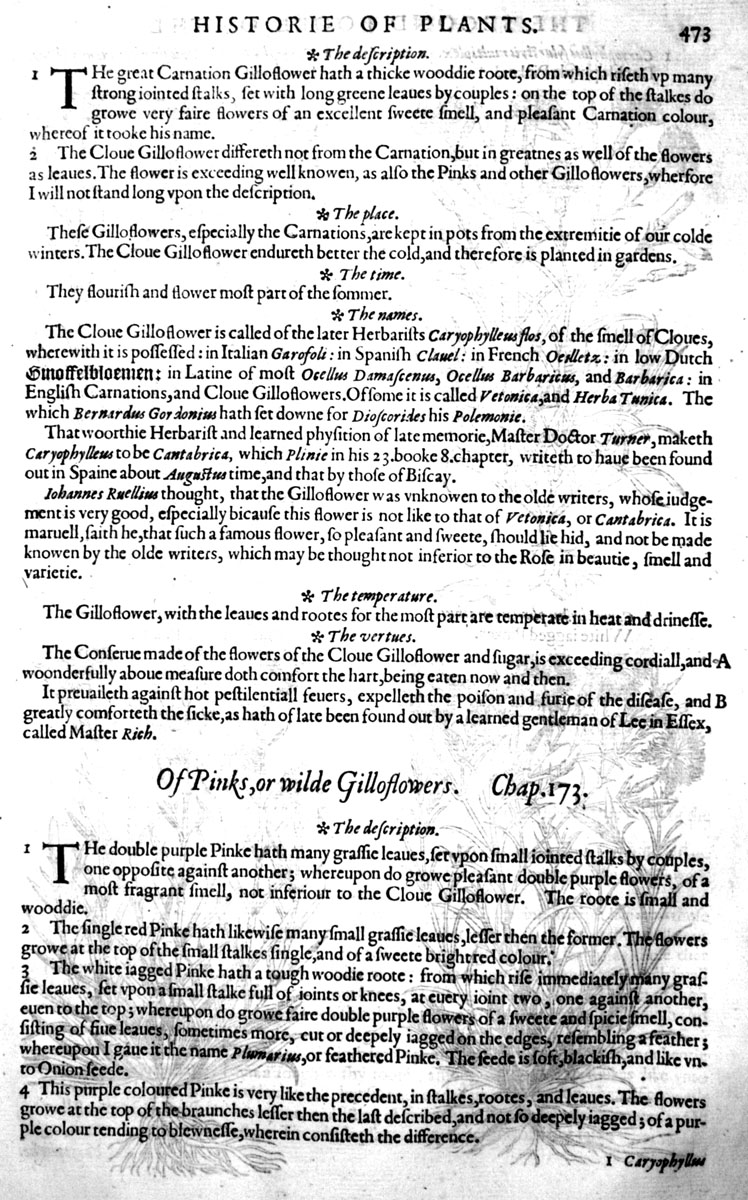 HISTORIE OF PLANTS. 473
❋ The deſcription.
1 THe great Carnation Gilloflower hath a thicke wooddie roote, from which riſeth vp many
ſtrong iointed ſtalks, ſet with long greene leaues by couples: on the top of the ſtalkes do
growe very faire flowers of an excellent ſweete ſmell, and pleaſant Carnation colour,
whereof it tooke his name.
2 The Cloue Gilloflower differeth not from the Carnation, but in greatnes as well of the flowers
as leaues. The flower is exceeding well knowen, as alſo the Pinks and other Gilloflowers, wherfore
I will not ſtand long vpon the deſcription.
❋ The place.
Theſe Gilloflowers, eſpecially the Carnations, are kept in pots from the extremitie of our colde
winters. The Cloue Gilloflower endureth better the cold, and therefore is planted in gardens.
❋ The time.
They flouriſh and flower moſt part of the ſommer.
❋ The names.
The Cloue Gilloflower is called of the later Herbariſts Caryophylleus flos, of the ſmell of Cloues,
wherewith it is poſſeſſed: in Italian Garofoli: in Spaniſh Clauel: in French Oeilletz: in low Dutch
Ginoffelbloemen: in Latine of moſt Ocellus Damaſcenus, Ocellus Barbaricus, and Barbarica: in
Engliſh Carnations, and Cloue Gilloflowers. Of ſome it is called Vetonica, and Herba Tunica. The
which Bernardus Gordonius hath ſet downe for Dioſcorides his Polemonie.
That woorthie Herbariſt and learned phyſition of late memorie, Maſter Doctor Turner, maketh
Caryophylleus to be Cantabrica, which Plinie in his 23. booke 8. chapter, writeth to haue been found
out in Spaine about Auguſtus time, and that by thoſe of Biſcay.
Iohannes Ruellius thought, that the Gilloflower was vnknowen to the olde writers, whoſe iudge-
ment is very good, eſpecially bicauſe this flower is not like to that of Vetonica, or Cantabrica. It is
maruell, ſaith he, that ſuch a famous flower, ſo pleaſant and ſweete, ſhould lie hid, and not be made
knowen by the olde writers, which may be thought not inferior to the Roſe in beautie, ſmell and
varietie.
❋ The temperature.
The Gilloflower, with the leaues and rootes for the moſt part are temperate in heat and drineſſe.
❋ The vertues.
The Conſerue made of the flowers of the Cloue Gilloflower and ſugar, is exceeding cordiall, and A
woonderfully aboue meaſure doth comfort the hart, being eaten now and then.
It preuaileth againſt hot peſtilentiall feuers, expelleth the poiſon and furie of the diſeaſe, and B
greatly comforteth the ſicke, as hath of late been found out by a learned gentleman of Lee in Eſſex,
called Maſter Rich.
Of Pinks, or wilde Gilloflowers. Chap. 173.
❋ The deſcription.
1 THe double purple Pinke hath many graſſie leaues, ſet vpon ſmall iointed ſtalks by couples,
one oppoſite againſt another; whereupon do growe pleaſant double purple flowers, of a
moſt fragrant ſmell, not inferiour to the Cloue Gilloflower. The roote is ſmall and
wooddie.
2 The ſingle red Pinke hath likewiſe many ſmall graſſie leaues, leſſer then the former. The flowers
growe at the top of the ſmall ſtalkes ſingle, and of a ſweete bright red colour.
3 The white iagged Pinke hath a tough woodie roote: from which riſe immediately many graſ-
ſie leaues, ſet vpon a ſmall ſtalke full of ioints or knees, at euery ioint two, one againſt another,
euen to the top; whereupon do growe faire double purple flowers of a ſweete and ſpicie ſmell, con-
ſiſting of fiue leaues, ſometimes more, cut or deepely iagged on the edges, reſembling a feather;
whereupon I gaue it the name Plumarius, or feathered Pinke. The ſeede is ſoft, blackiſh, and like vn-
to Onion ſeede.
4 This purple coloured Pinke is very like the precedent, in ſtalkes, rootes, and leaues. The flowers
growe at the top of the braunches leſſer then the laſt deſcribed, and not ſo deepely iagged; of a pur-
ple colour tending to blewneſſe, wherein conſiſteth the difference.
1 Caryophyllus